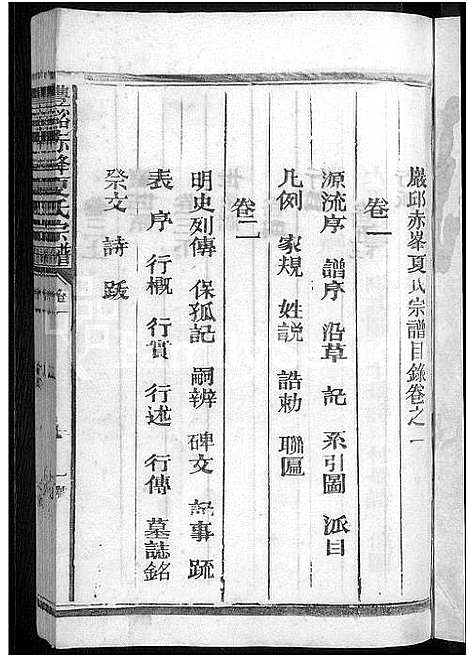 嚴邱赤峯夏氏宗譜目錄卷之一
卷一
源流序 譜序 沿革 記 系引圖 派目
凡例 家規 姓説 誥勅 聯匾
卷二
明史列傳 保孤記 嗣辨 碑文 記事 䟽
表 序 行概 行實 行述 行傳 墓誌銘
祭文 詩 跋
豐谿赤峰夏氏宗譜